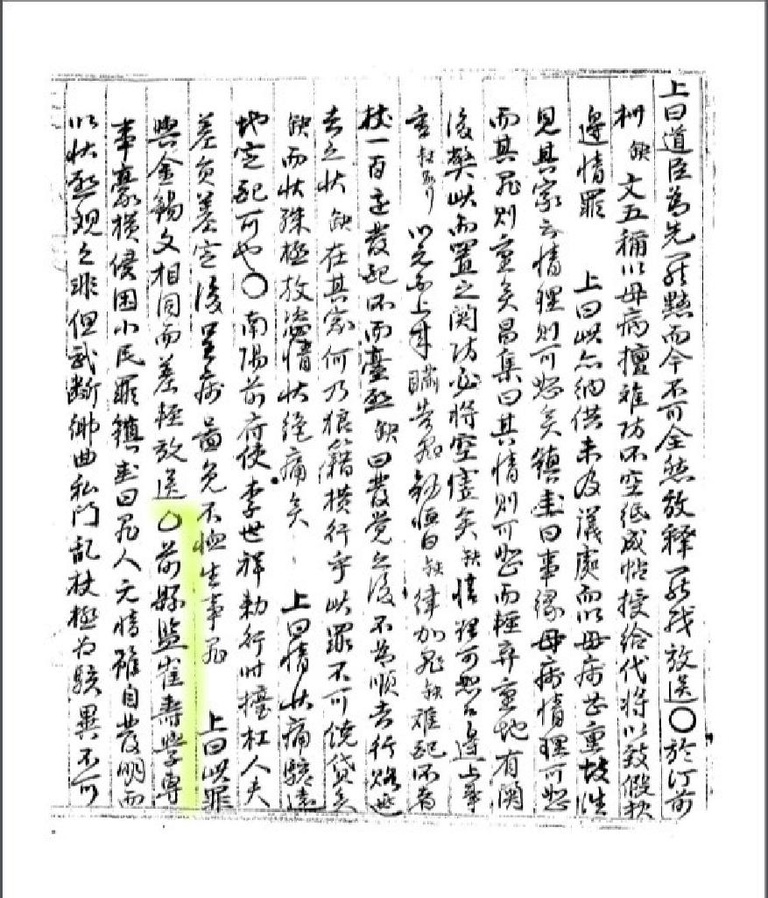 上曰道臣爲先罷黜而今不可全然放釋罷職放送〇於汀前
柵缺文五稱以母病擅離防所空紙成帖授給代將以致假
邊情罪 上曰此亦納供未及議處而以母病甚重故
見其家云情理則可恕矣鎭圭曰事緣母病情理可恕
而其罪則重矣昌集曰其情則可恕而輕棄重地有關
後弊此而置之關防必將空虛矣缺情理可恕邊上軍
重 以 上年 罪 曰缺律加罪缺雖配所者
杖一百還發配所而臺啓缺曰發覺之後不爲順去行賂逃
去之狀缺在其家何乃狼籍橫行乎此罪不可饒貸矣
缺而狀殊極放恣情狀絶痛矣 上曰情狀痛駭遠
地定配可也〇南陽前府使李世祥勅行時擡杠人夫
差負差定後 病圖免不恤生事罪 上曰此罪
與金錫文相同而差輕放送〇前縣監崔壽學專
事豪橫侵困小民罪鎭圭曰罪人元情雖自發明而
以狀啓觀之非但武斷鄕曲私門亂杖極爲駭異不可